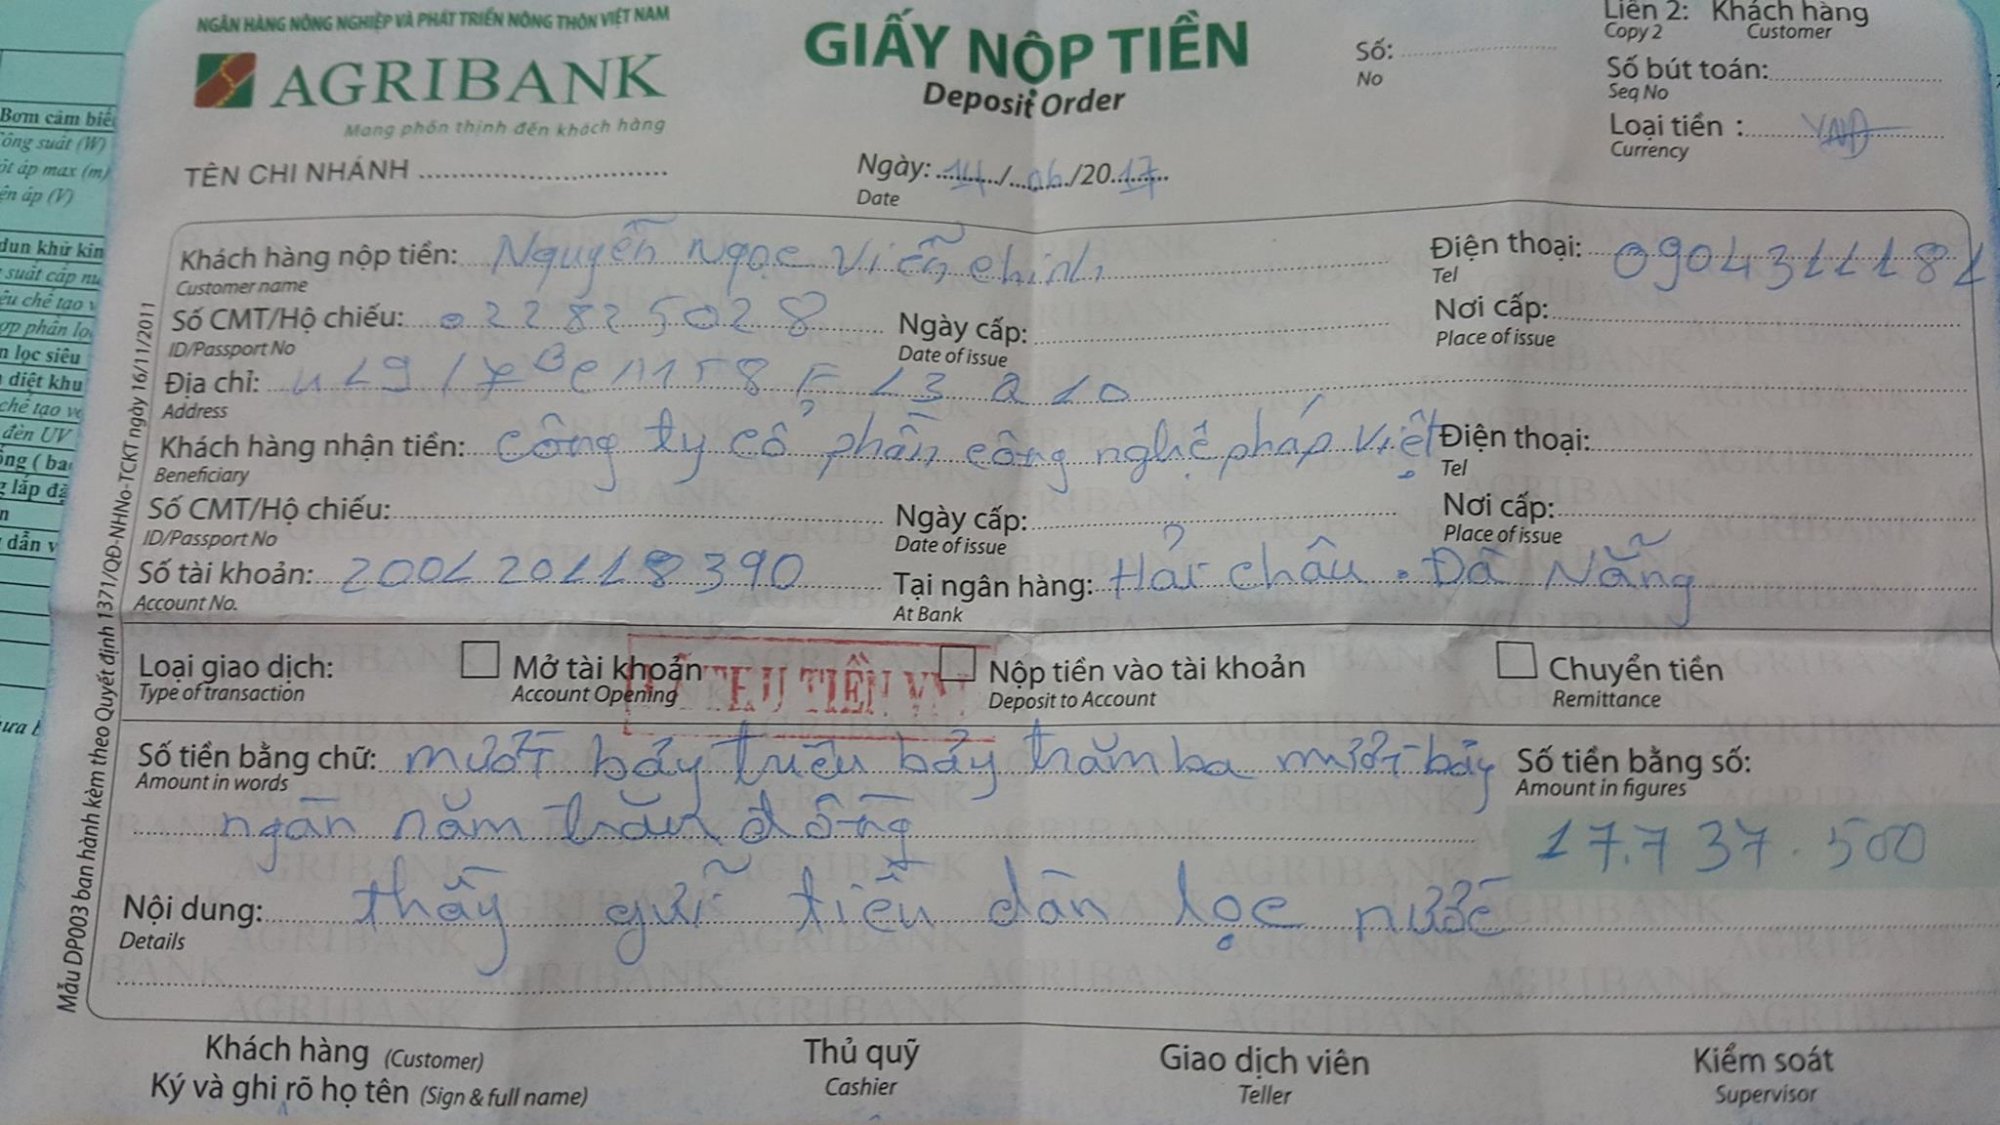 NGÂN HÀNG NÔNG NGHIỆP VÀ PHÁT TRIỂN NÔNG THÔN VIỆT NAM
AGRIBANK
Mang phồn thịnh đến khách hàng
TÊN CHI NHÁNH
GIẤY NỘP TIỀN
Deposit Order
Ngày: 14/06/2017
Date
Số:
No
Liên 2: Khách hàng
Copy 2 Customer
Số bút toán:
Seq No
Loại tiền : VND
Currency
Khách hàng nộp tiền: Nguyễn Ngọc Viễn Chinh Điện thoại: 0904311181
Customer name Tel
Số CMT/Hộ chiếu: 022825028 Ngày cấp: Nơi cấp:
ID/Passport No Date of issue Place of issue
Địa chỉ: F 13 Q 10
Address
Khách hàng nhận tiền: Công ty cổ phần công nghệ pháp việt Điện thoại:
Beneficiary Tel
Số CMT/Hộ chiếu: Ngày cấp: Nơi cấp:
ID/Passport No Date of issue Place of issue
Số tài khoản: 2001201118390 Tại ngân hàng: Hải châu . Đà Nẵng
Account No. At Bank
Loại giao dịch: Mở tài khoản Nộp tiền vào tài khoản Chuyển tiền
Type of transaction Account Opening Deposit to Account Remittance
TIỀN
Số tiền bằng chữ: mười bảy triệu bảy trăm ba mười bảy Số tiền bằng số:
Amount in words Amount in figures
ngàn năm trăm đồng 17.737.500
Nội dung: thấy gửi tiền dàn lọc nước
Details
Khách hàng (Customer) Thủ quỹ Giao dịch viên Kiểm soát
Ký và ghi rõ họ tên (Sign & full name) Cashier Teller Supervisor
Mẫu DP003 ban hành kèm theo Quyết định 1371/QĐ-NHNo-TCKT ngày 16/11/2011
Bơm cảm biế
ông suất (W)
ột áp max (m)
ện áp (V)
dun khử kin
suất cấp nu
êu chế tạo v
ợp phân lo
n lọc siêu
diệt khu
chế tạo vo
đèn UV
ống ( ba
g lắp đặ
n
dẫn v